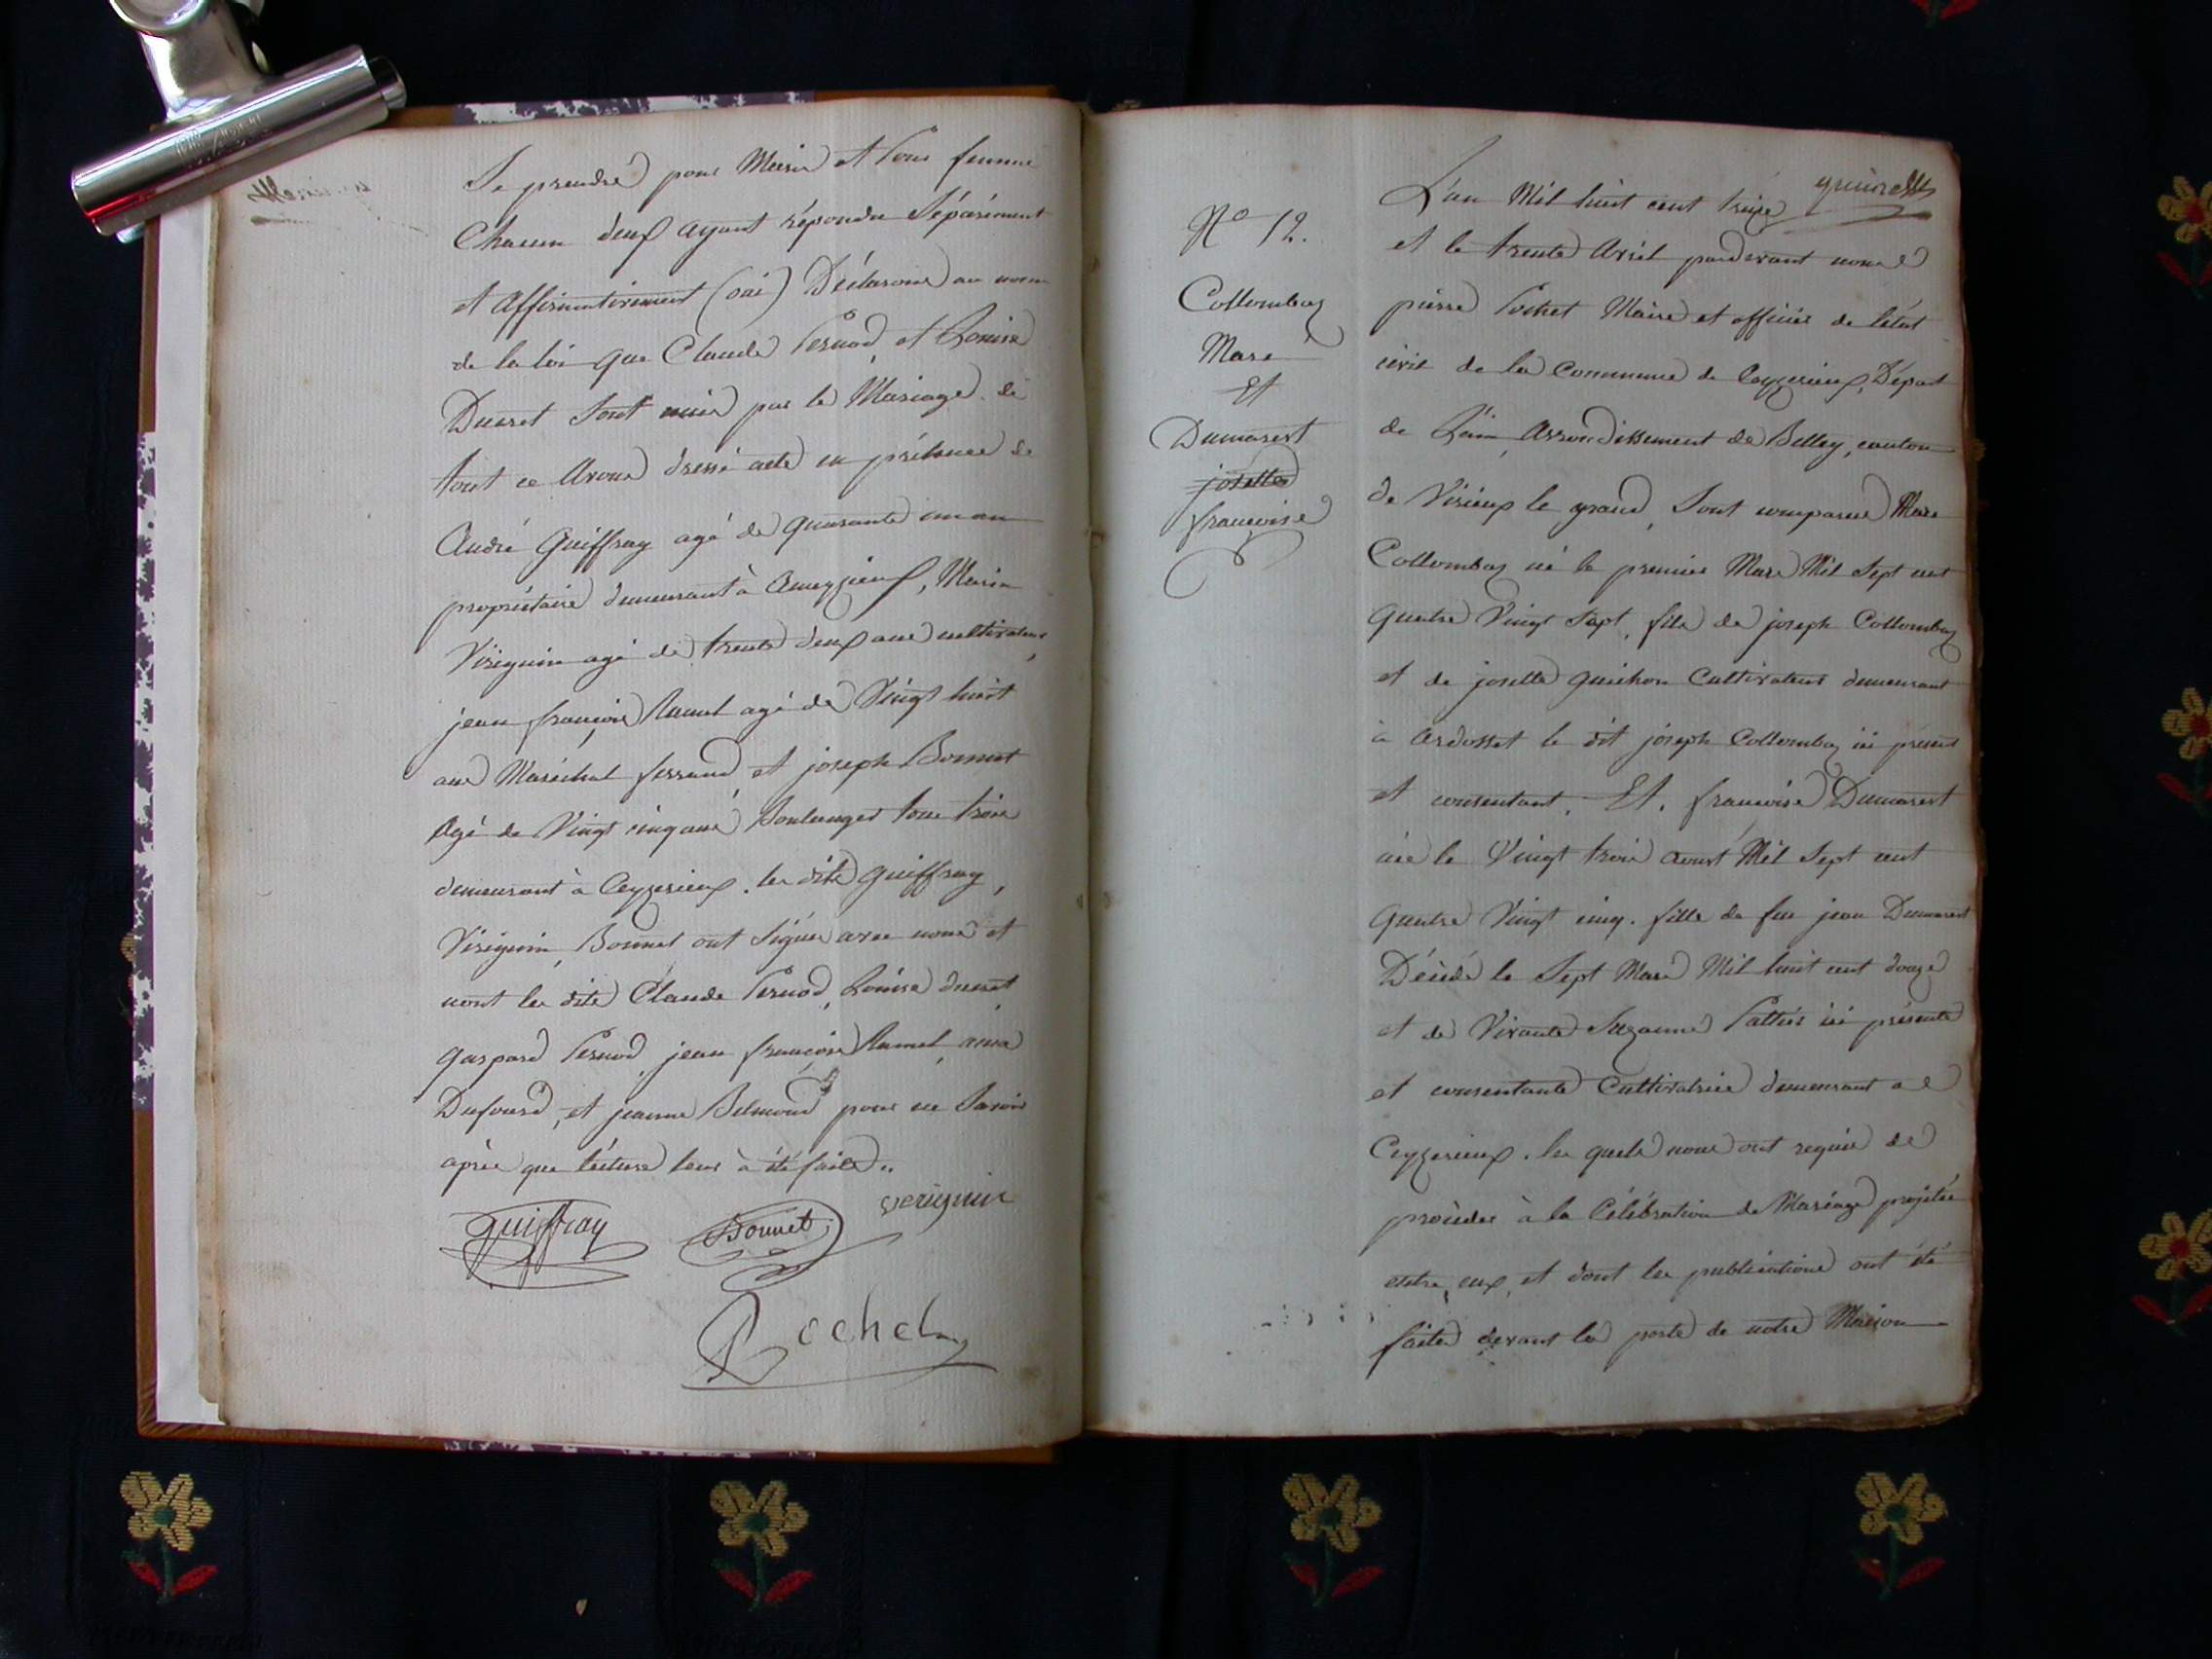 Se prendre pour Marie et pour femme
Chacun deux ayant répondu Séparément
et affirmativement (oui) Déclarons au nom
de la loi que Claude Pernod et Louise
Ducret Sont unis par le Mariage. de
tout ce avons dressé acte en présence de
André Guiffray agé de quarante un an
propriétaire demeurant à Ameyzieux, Marin
Viriguin agé de trente deux ans cultivateur,
jean françois Ramel agé de Vingt huit
ans Maréchal ferrand et joseph Bonnet
Agé de Vingt cinq ans Boulanger tous trois
demeurant à Ceyzerieux. les dits Guiffray,
Viriguin, Bonnet ont Signés avec nous et
nont les dits Claude Pernod, Louise ducret
gaspard Pernod, jean françois Ramel,
Dufourd, et jeanne Belmond pour ne Savoir
après que lecture leur à été faite..
Guiffray Bonnet verignin
Pochet
L'an Mil huit cent treize
et le trente Avril pardevant nous
pierre Pochet Maire et officier de l'état
civil de la Commune de Ceyzerieux, Départ
de L'ain, Arrondissement de Belley, canton
de Virieux le grand, Sont comparus Marc
Collomban né le premier Mars Mil Sept cent
quatre Vingt Sept, fils de joseph Collomban
et de josette guichon Cultivateurs demeurant
à Ardosset le dit joseph Collomban ici présent
et consentant. Et. françoise Dumarest
née le Vingt trois aoust Mil Sept cent
quatre Vingt cinq. fille de feu jean Dumarest
Décédé le Sept Mars Mil huit cent douze
et de Vivante Suzanne Pattier ici présente
et consentante Cultivatrice demeurant a
Ceyzerieux. les quels nous ont requis de
procéder à la Célébration de Mariage projetée
entre eux, et dont les publications ont été
faites devant la porte de notre Maison
N° 12.
Collomban
Marc
Et
Dumarest
josette
françoise